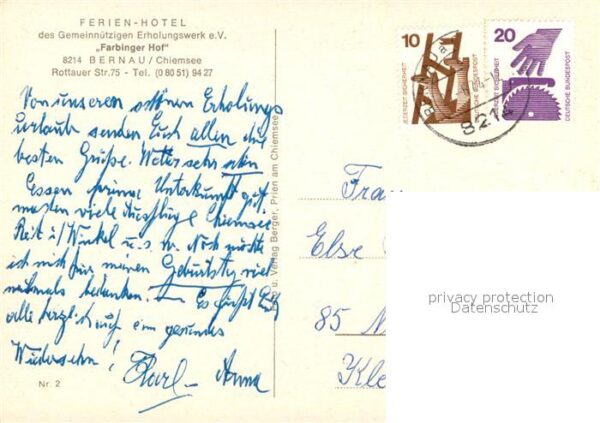 FERIEN-HOTEL
des Gemeinnützigen Erholungswerk e.V.
„Farbinger Hof"
8214 BERNAU / Chiemsee
Rottauer Str. 75 - Tel. (0 80 51) 94 27
Von unseren schönen Erholungs
urlaub senden Euch allen die
besten Grüße. Wetter sehr
Essen prima Unterkunft gut
machen viele Ausflüge Chiemsee
Reit i/ Winkel u.s.w. Noch möchte
ich mich für meinen Geburtstag
nochmals bedanken. Es grüßt Euch
alle herzlich auf ein gesundes
Wiedersehn!
Karl - Anna
Nr. 2
Foto u. Verlag Berger, Prien am Chiemsee
10
JEDERZEIT SICHERHEIT
DEUTSCHE BUNDESPOST
20
JEDERZEIT SICHERHEIT
DEUTSCHE BUNDESPOST
8214
Frau
Else
85 N
Kle
privacy protection
Datenschutz